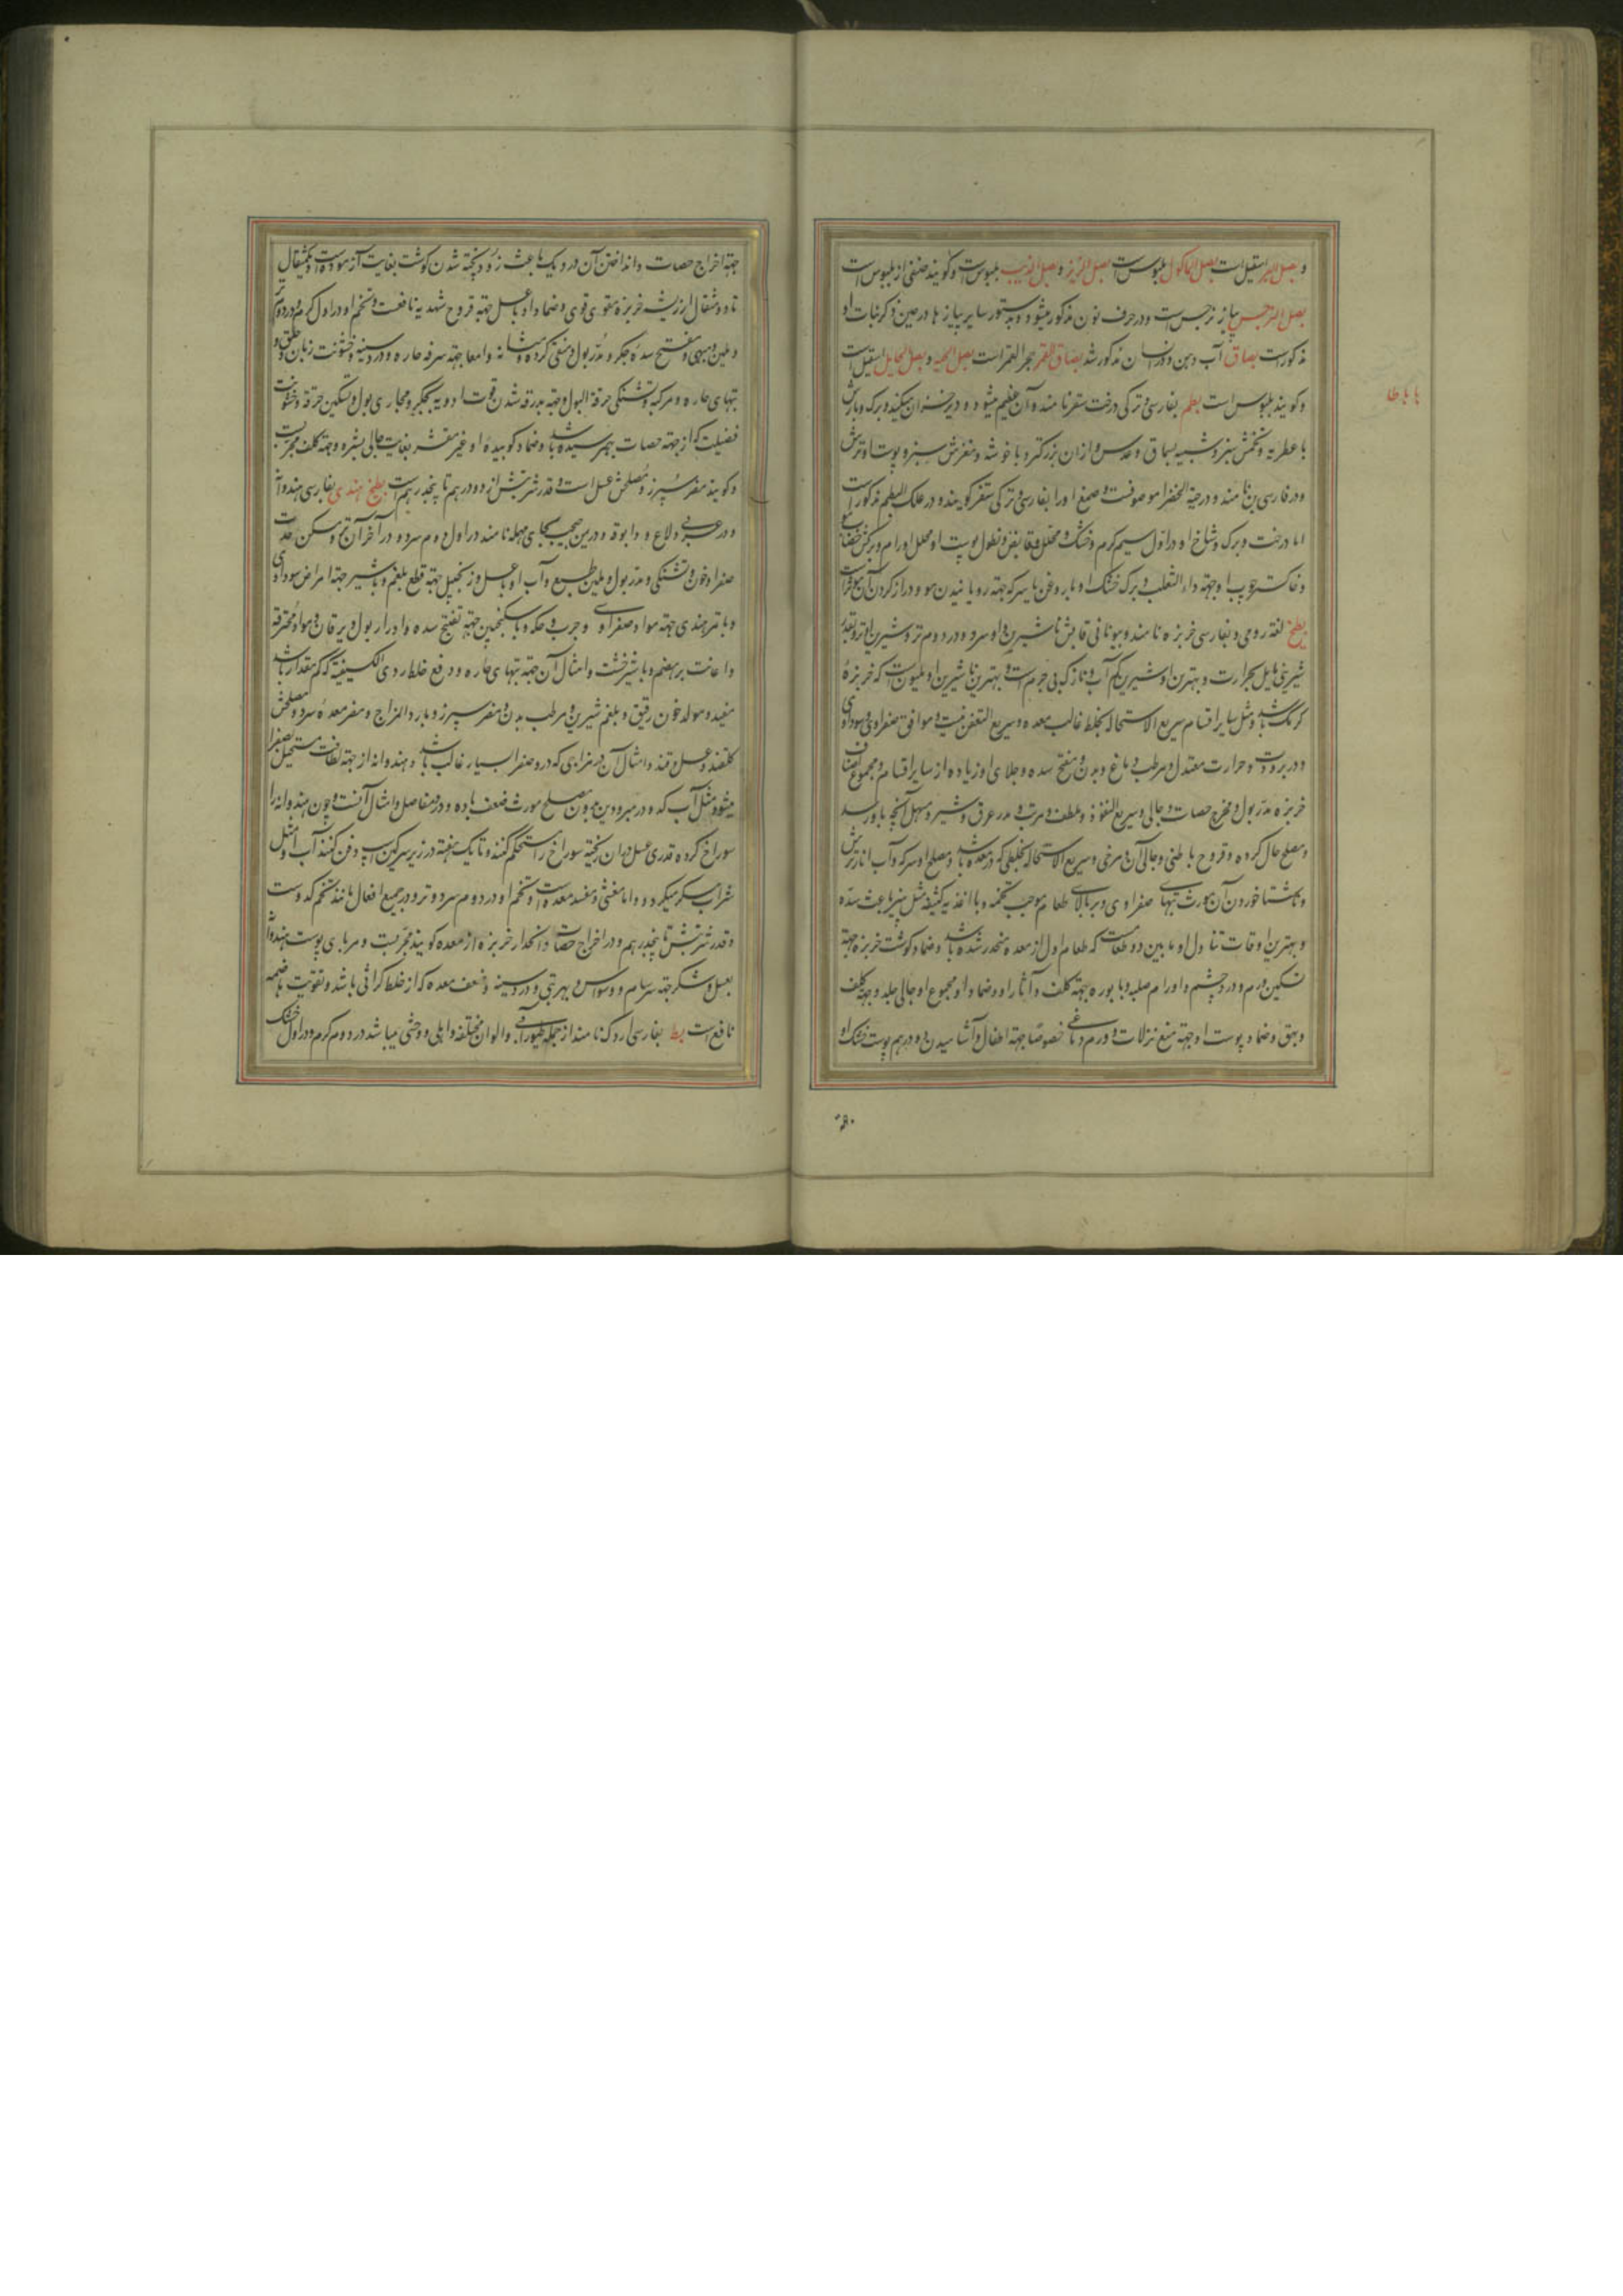 و بصل البر اسقیل است بصل الماکول بلبوس است بصل الزیز و بصل الذیب بلبوس است و کویند صنفی از بلبوس است
بصل النرجس پیاز نرجس است و در حرف نون مذکور میشود و بدستور سایر پیازها در ضمن ذکر نبات او
مذکور است بصاق آب دهن و در انسان مذکور شد بصاق القمر حجر القمر است بصل الحیه و بصل اسقیل است
باباطا
و کویند بلبوس است بطم بفارسی و ترکی درخت سقز نامند و آن عظیم میشود و در خزان نمیکند و برک و بارش
با عطریه و تخمش سبز و شبیه بسماق و عدس و از آن بزرکتر و با خوشه و مغزش سبز و پوست او ترش
و در فارسی بن نامند و در حبة الخضرا موصوفست و صمغ او را بفارسی و ترکی سقز کویند و در علک البطم مذکور است
اما درخت و برک و شاخ او در اول سیم کرم و خشک و محلل و قابض و نطول پوست او محلل اورام و برکش خضاب
و خاکستر چوب او جهة داء الثعلب و برک خشک او با روغن یا سرکه جهة رویانیدن مو و دراز کردن آن
بطیخ لغة رومی و بفارسی خربزه نامند و بیونانی ناشیرین او سرد و در دوم تر و شیرین او تر و بقدر
شیرینی مایل بحرارت و بهترین او شیرین کم آب و نازک بی جرم است و بهترین ناشیرین او ملیون است که خربزهٔ
کرمک باشد و مثل سایر اقسام سریع الاستحاله بخلط غالب معده و سریع التعفن نیست و موافق صفراوی و سوداوی
و در برودت و حرارت معتدل و مرطب دماغ و بدن و مفتح سده و جلای او زیاده از سایر اقسام و مجموع اصناف
خربزه مدر بول و مخرج حصات و جالی و سریع النفوذ و ملطف و مرتب و مدر عرق و شیر و مسهل آنچه باو رسد
و مصلح حال کرده و قروح باطنی و جالی آن و مرخی و سریع الاستحاله بخلطی که در معده باشد و مصلح او سرکه و آب انار ترش
و ناشتا خوردن آن مورث تبهای صفراوی و بر بالای طعام موجب تخمه و با اغذیه کثیفه مثل پنیر باعث سده
و بهترین اوقات تناول او مابین دو طعام است که طعام اول از معده منحدر شده باشد و ضماد کوشت خربزه جهة
تسکین ورم و درد چشم و اورام صلبه و با بوره جهة کلف و آثار او و ضماد او مجموع او جالی جلد و جهة کلف
و بهق و ضماد پوست او جهة منع نزلات و ورم دماغی خصوصًا جهة اطفال و آشامیدن دو درهم پوست خشک او
جهة اخراج حصات و انداختن آن در دیک باعث زود پخته شدن کوشت بغایت آزموده است و یکمثقال
تا دو مثقال از ریشه خربزه مقوی قوی و ضماد او با عسل جهة قروح شهدیه نافعست و تخم او در اول کرم و در دوم تر
و ملین و مبهی و مفتح سدهٔ جکر و مدر بول و منقی کرده و مثانه و امعا و جهة سرفه حاره و درد سینه و خشونت زبان و حلق و
تبهای حاره و مرکبه و تشنکی و حرقة البول و جهة بدرقه شدن قوت ادویه بجکر و مجاری بول و تسکین حرقه و خشونت
فضیلت که از جهة حصات بهم رسیده باشد و ضماد کوبیدهٔ او غیر مقشر بغایت جالی بشره و جهة کلف مجربست
و کویند مضر سپرز و مصلحش عسل است و قدر شربتش از دو درهم تا پنجدرهم است بطیخ هندی بفارسی هندوانه
و در عربی دلاع و دابوقه و در بن حبحب بحای مهمله نامند در اول دوم سرد و در آخر آن تر و مسکن حدت
صفرا و خون و تشنکی و مدر بول و ملین طبع و آب او با عسل و زنجبیل جهة قطع بلغم و با شیر جهة امراض سوداوی
و با تمر هندی جهة مواد صفراوی و جرب و حکه و با سکنجبین جهة تفتیح سده و ادرار بول و یرقان و مواد محترقه
و اعانت بر هضم و با شیرخشت و امثال آن جهة تبهای حاره و دفع خلط ردی الکیفیة که کم مقدار باشد
مفید و مولد خون رقیق و بلغم شیرین و مرطب بدن و مضر سپرز و بارد المزاج و مضر معدهٔ سرد و مصلحش
کلقند و عسل و قند و امثال آن و مزاجی که در و صفرا بسیار غالب باشد و هندوانه از جهة لطافت مستحیل بصفرا
میشود مثل آب کدو و در مبرودین بدون مصلح مورث ضعف باه و درد مفاصل و امثال آنست و چون هندوانه را
سوراخ کرده قدری عسل در آن ریخته سوراخ را مستحکم کنند و تا یک هفته در زیر سرکین اسب دفن کنند آب او مثل
شراب مسکر میکردد اما مغشی و مفسد معده است و تخم او در دوم سرد و تر و در جمیع افعال مانند تخم کدوست
و قدر شربتش تا پنجدرهم و در اخراج حصات و انحدار خربزه از معده کویند مجربست و مربای پوست هندوانه
بعسل و شکر جهة سرسام و وسواس و بهربتی و درد سینه و ضعف معده که از خلط کراثی باشد و تقویت هاضمه
نافع است بط بفارسی اردک نامند از جمله طیور آبی و الوان مختلفه و اهلی و وحشی میباشد در دوم کرم و در اول خشک